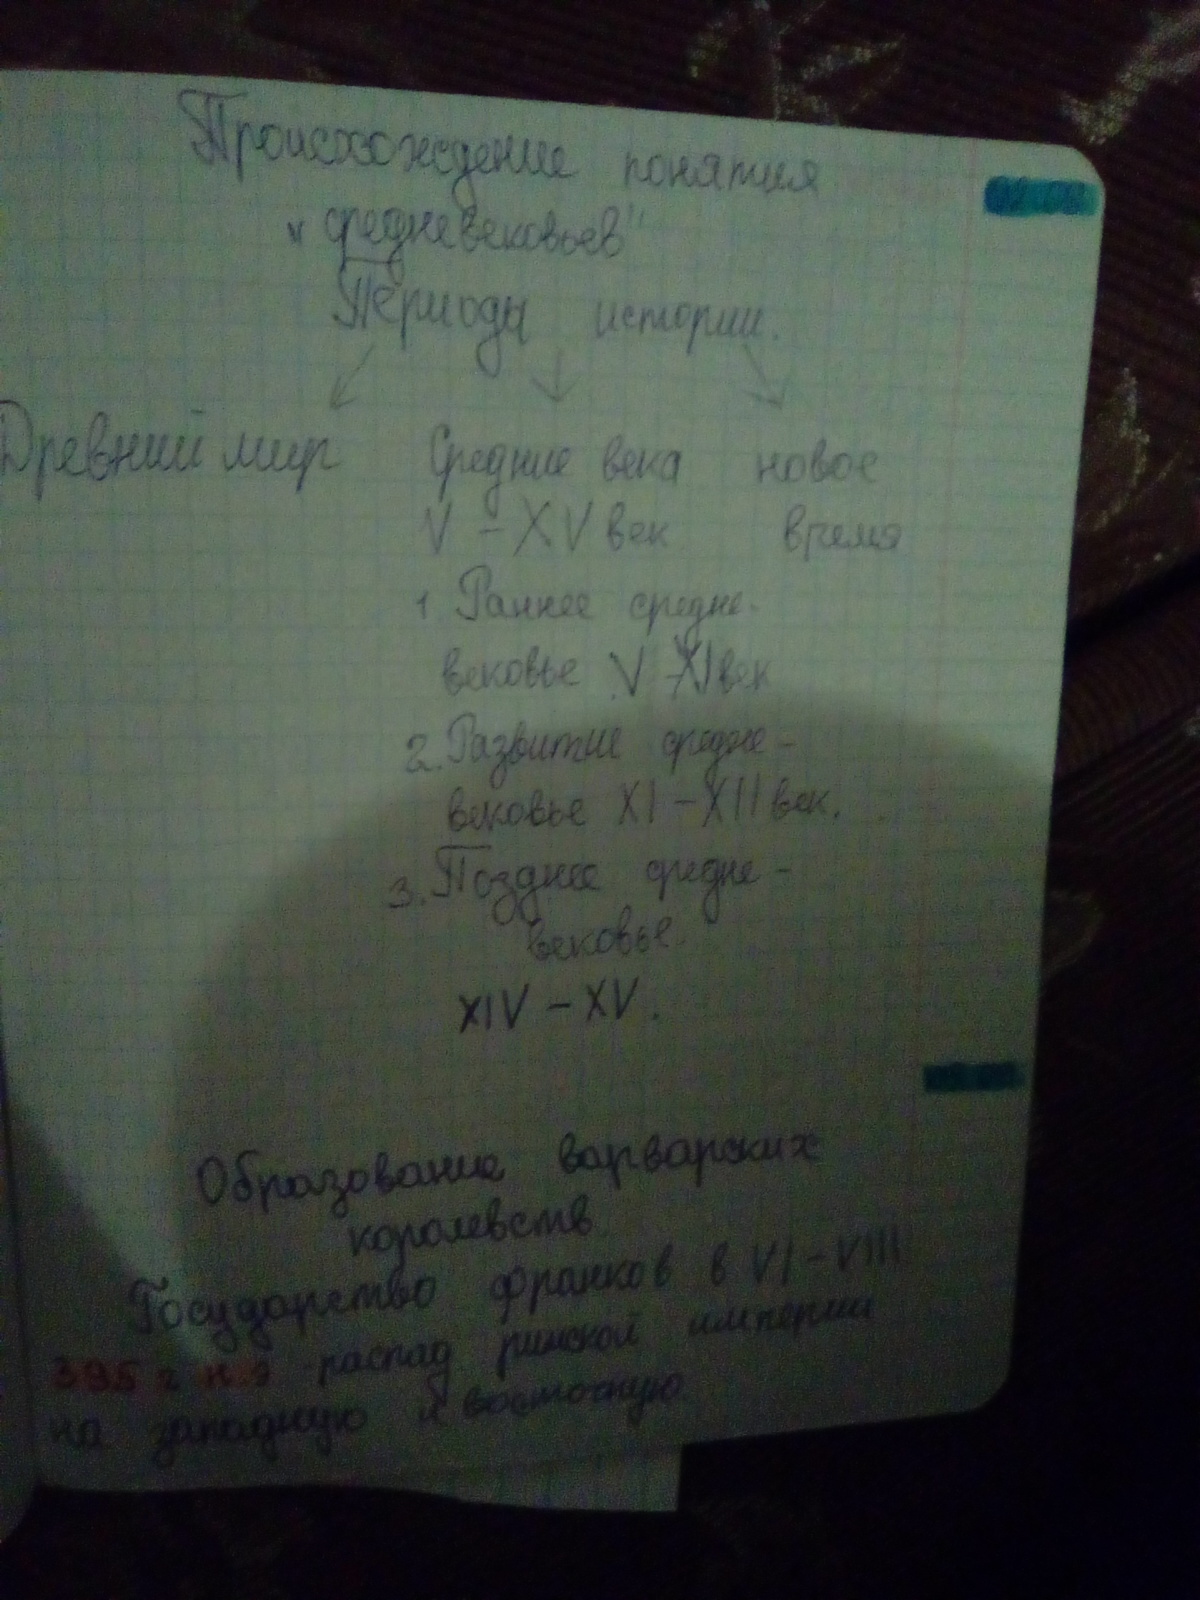 Происхождение понятия
„средневековьев"
Периоды истории.
Древний мир Средние века новое
V – XV век время
1. Раннее средне-
вековье V – XI век
2. Развитие средне-
вековье XI – XIII век.
3. Позднее средне-
вековье
XIV – XV.
Образование варварских
королевств
Государство франков в VI – VIII
395 г н.э распад римской империи
на западную и восточную